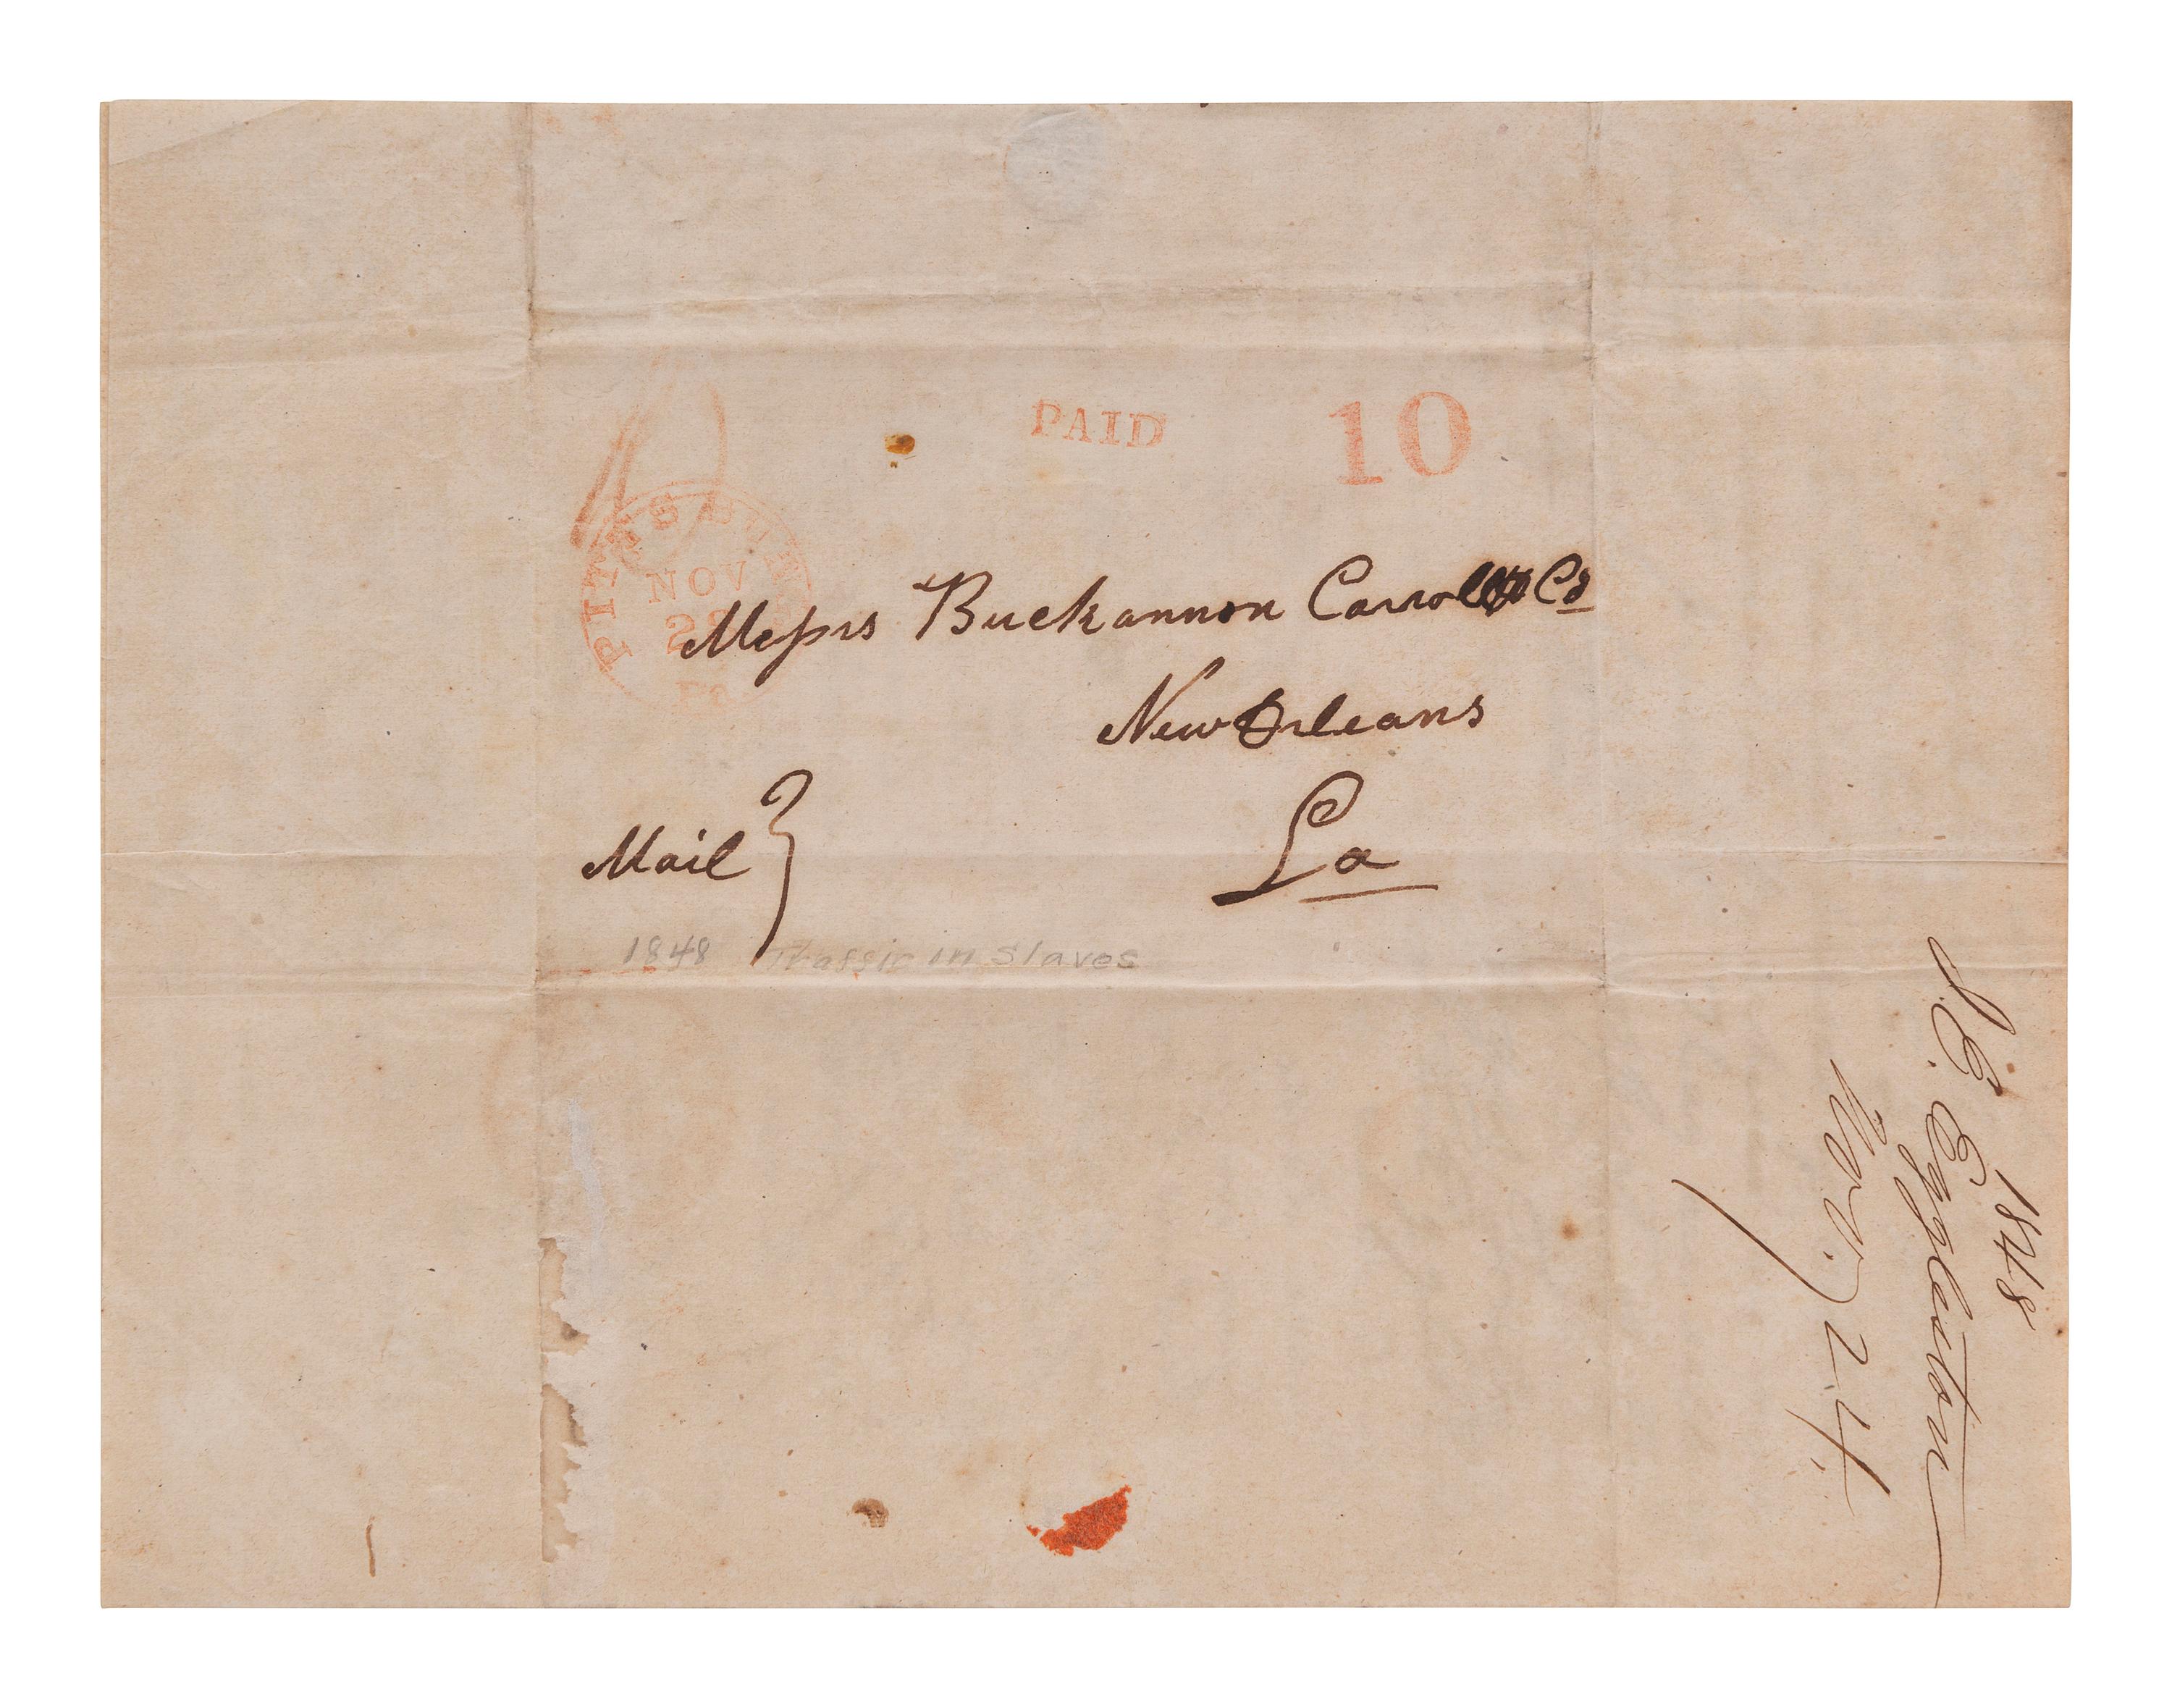 PAID 10
PITTSBURGH
NOV
Pa
Messrs Buckannon Carroll & Co
New Orleans
La
Mail
1848 Traffic in Slaves
1848
Eggleston
Nov. 24